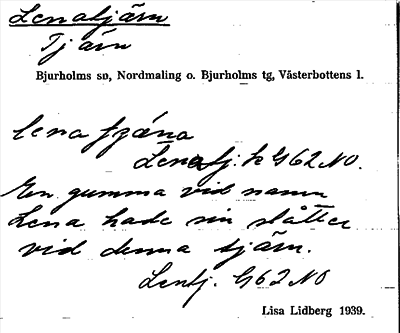 Lenatjärn
Tjärn
Bjurholms sn, Nordmaling o. Bjurholms tg, Västerbottens l.
lena tjäna
Lenatj. k G62NO.
En gumma vid namn
Lena hade sin slåtter
vid denna tjärn.
Lentj. G62NO
Lisa Lidberg 1939.